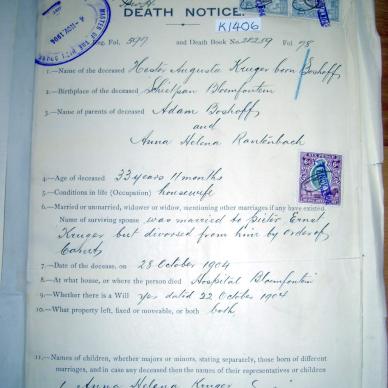 DEATH NOTICE.
K1406
MASTER OF THE
4-NOV.1904
Fol. 597 and Death Book No. Fol 75
1.—Name of the deceased Hester Augusta Kruger born Boshoff
2.—Birthplace of the deceased Bloemfontein
3.—Name of parents of deceased Adam Boshoff
and
Anna Helena Rautenbach
SIX PENCE
4.—Age of deceased 33 years 11 months
5.—Conditions in life (Occupation) housewife
6.—Married or unmarried, widower or widow, mentioning other marriages if any have existed.
Name of surviving spouse was married to Pieter Ernst
Kruger but divorsed from him by order of
7.—Date of the decease, on 28 October 1904
8.—At what house, or where the person died Hospital Bloemfontein
9.—Whether there is a Will yes dated 22 October 1904
10.—What property left, fixed or moveable, or both both
11.—Names of children, whether majors or minors, stating separately, those born of different
marriages, and in case any deceased then the names of their representatives or children
Anna Helena Kruger